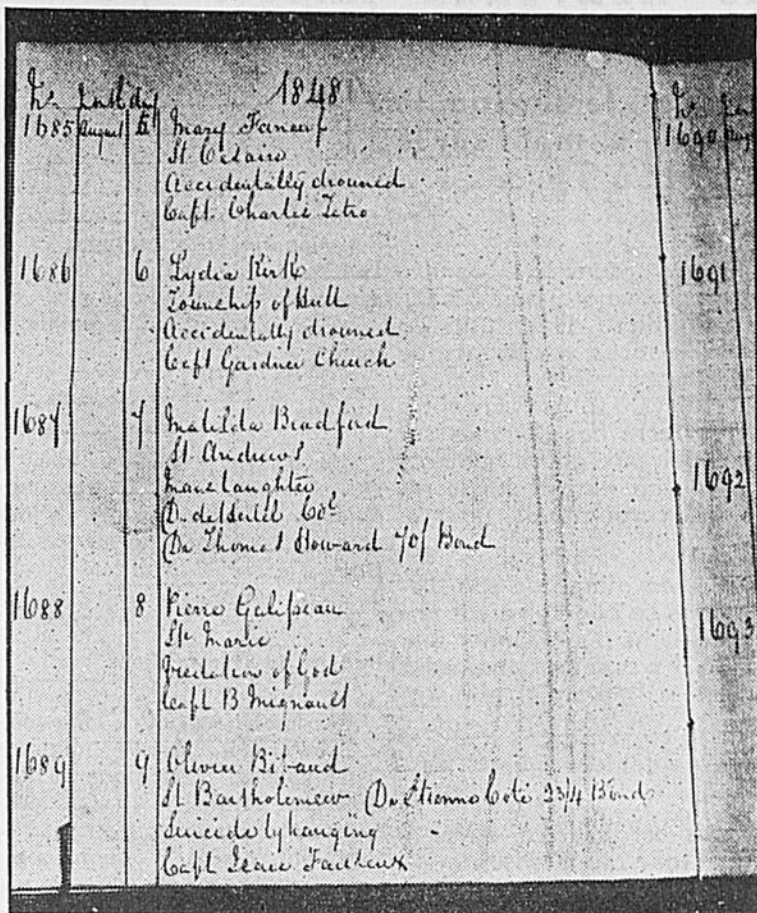 1848
No Month day
1685 August 5 Mary Faneuf
St Cesaire
Accidentally drowned
Capt. Charles Tetro
1686 6 Lydia Kirk
Township of Hull
Accidentally drowned
Capt Gardner Church
1687 7 Matilda Bradford
St. Andrews
Manslaughter
Col
Dr Thomas Howard 70/ Bond
1688 8 Pierre Galipeau
Ste Marie
Visitation of God
Capt B Mignault
1689 9 Olivier Bibaud
St Bartholemew (Dr Etienne Coté 23/4 Bond
Suicide by hanging
Capt Isaie Fauteux
No
1690 Aug
1691
1692
1693